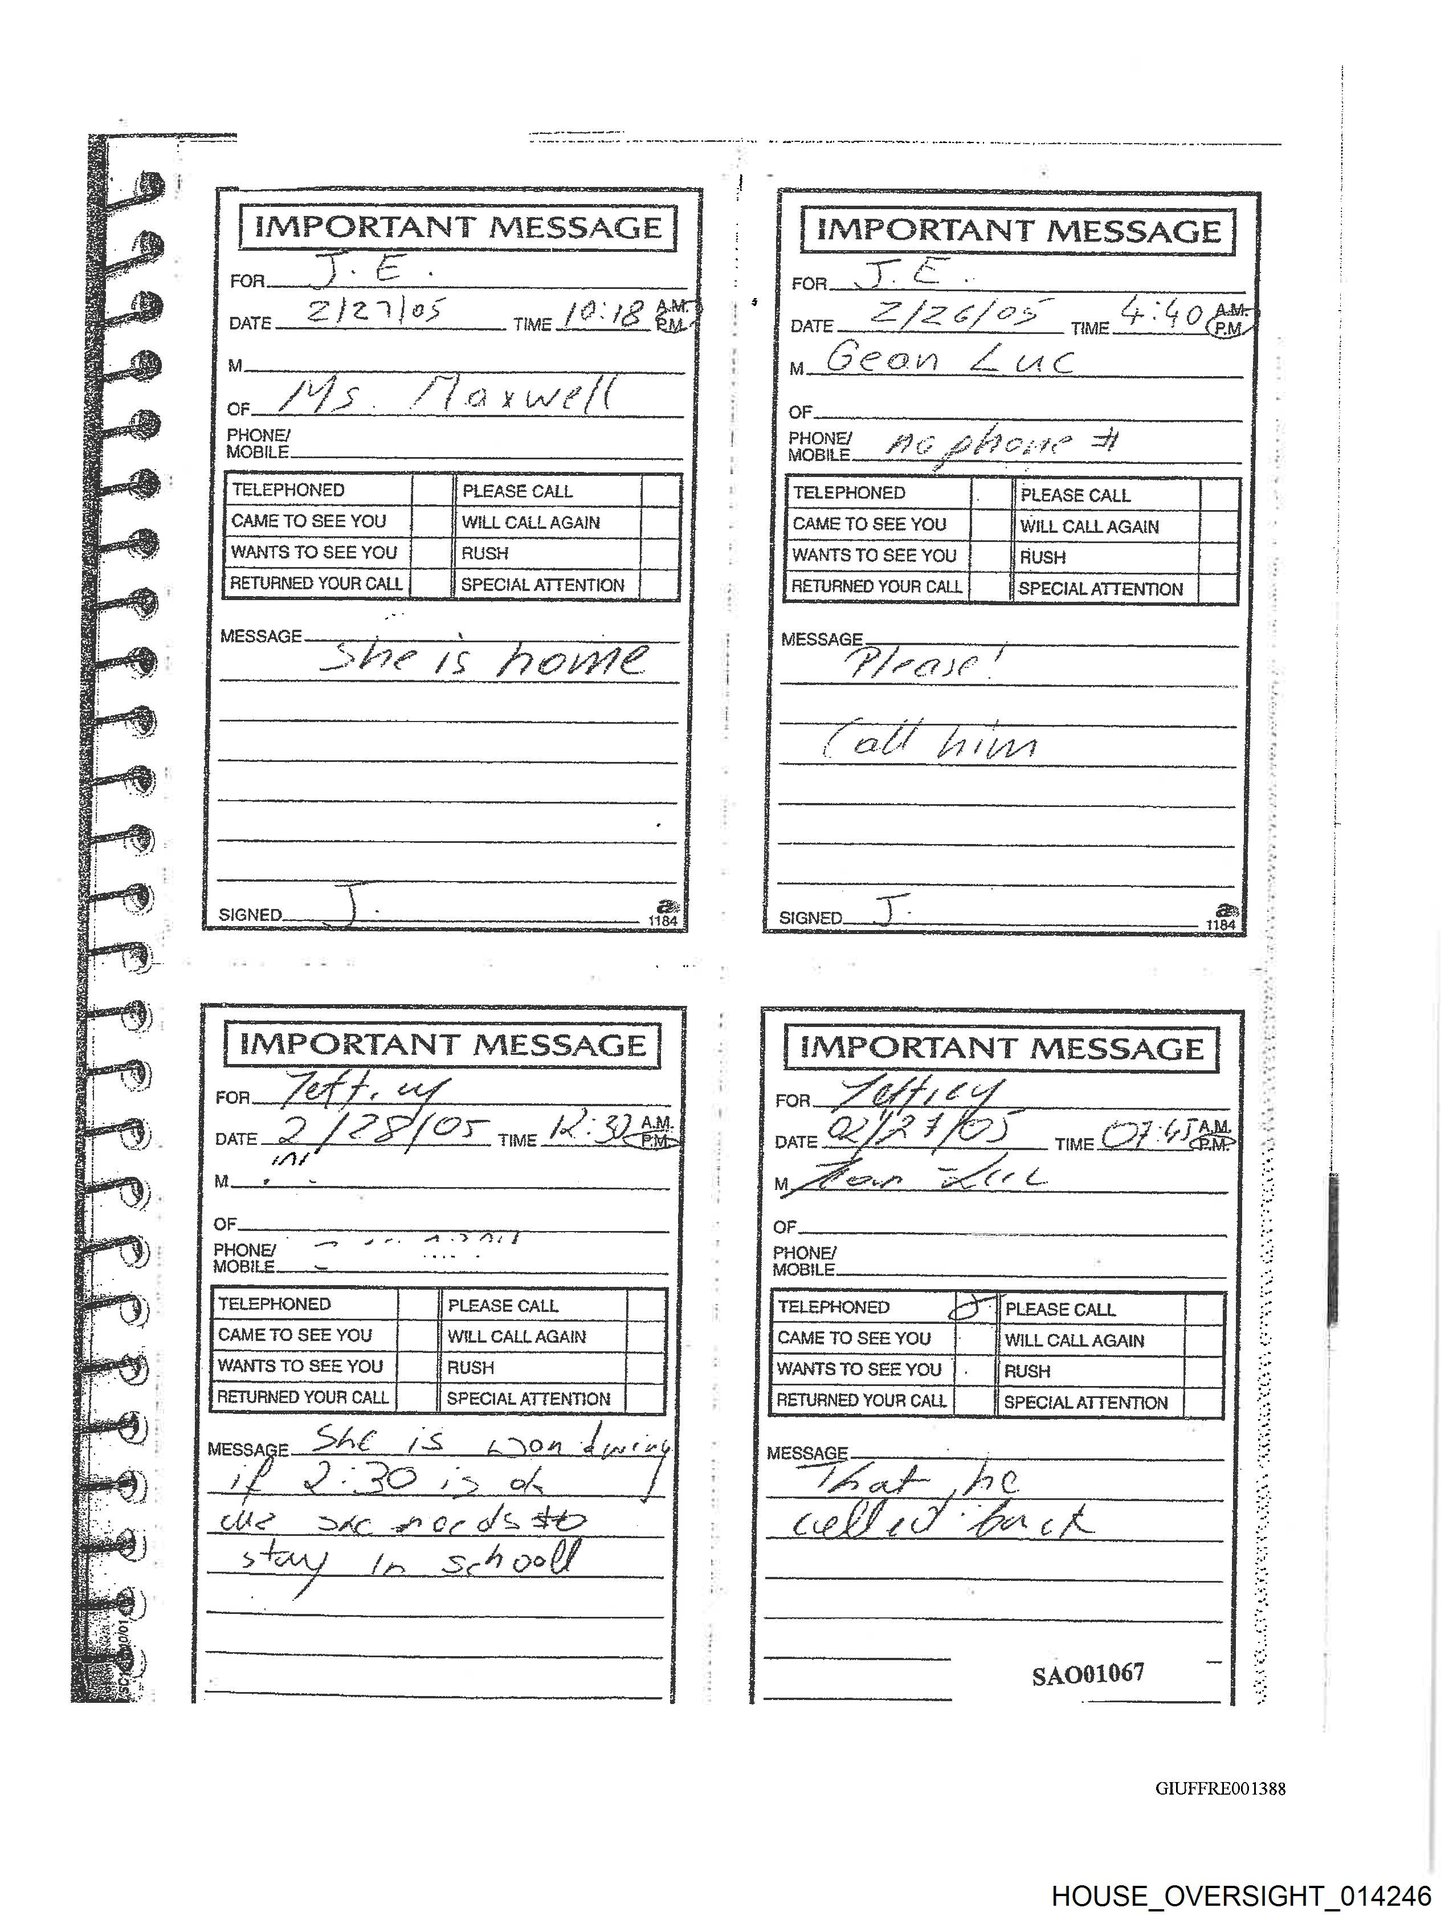 IMPORTANT MESSAGE
FOR J. E.
DATE 2/27/05 TIME 10:18 A.M. P.M.
M
OF Ms. Maxwell
PHONE/
MOBILE
TELEPHONED PLEASE CALL
CAME TO SEE YOU WILL CALL AGAIN
WANTS TO SEE YOU RUSH
RETURNED YOUR CALL SPECIAL ATTENTION
MESSAGE
She is home
SIGNED J.
1184
IMPORTANT MESSAGE
FOR J. E.
DATE 2/26/05 TIME 4:40 A.M. P.M.
M Gean Luc
OF
PHONE/
MOBILE no phone #
TELEPHONED PLEASE CALL
CAME TO SEE YOU WILL CALL AGAIN
WANTS TO SEE YOU RUSH
RETURNED YOUR CALL SPECIAL ATTENTION
MESSAGE
Please!
Call him
SIGNED J.
1184
IMPORTANT MESSAGE
FOR Jeffrey
DATE 2/28/05 TIME 12:30 A.M. P.M.
M
OF
PHONE/
MOBILE
TELEPHONED PLEASE CALL
CAME TO SEE YOU WILL CALL AGAIN
WANTS TO SEE YOU RUSH
RETURNED YOUR CALL SPECIAL ATTENTION
MESSAGE She is wondwing
if 2:30 is ok
she needs to
stay in schooll
IMPORTANT MESSAGE
FOR Jeffrey
DATE 02/27/05 TIME 07:45 A.M. P.M.
M Jean-Luc
OF
PHONE/
MOBILE
TELEPHONED PLEASE CALL
CAME TO SEE YOU WILL CALL AGAIN
WANTS TO SEE YOU RUSH
RETURNED YOUR CALL SPECIAL ATTENTION
MESSAGE
That he
called back
SAO01067
GIUFFRE001388
HOUSE_OVERSIGHT_014246